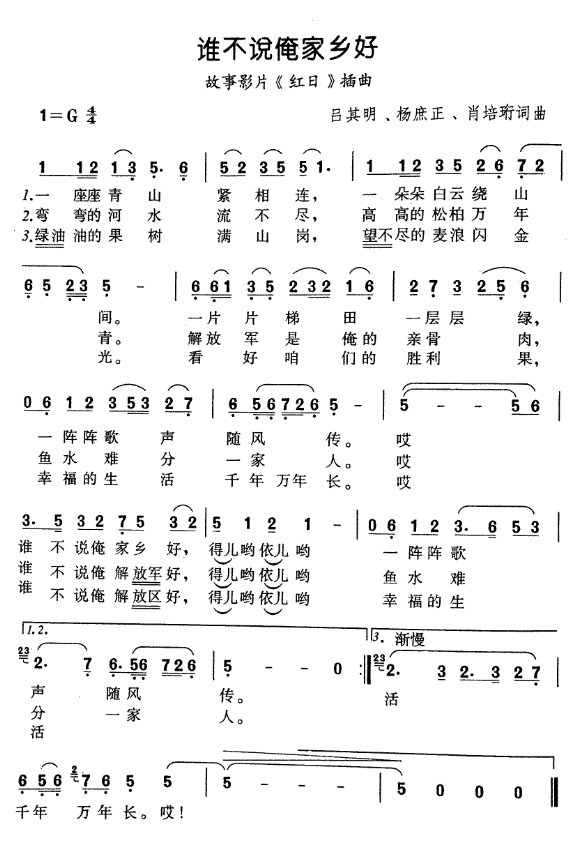 谁不说俺家乡好
故事影片《红日》插曲
1=G 4/4 吕其明、杨庶正、肖培珩词曲
1 12 13 5. 6 | 52 35 51. | 1 12 35 26 72
1.一 座座青山 紧相连， 一朵朵白云绕山
2.弯 弯的河水 流不尽， 高高的松柏万年
3.绿油油的果树 满山岗， 望不尽的麦浪闪金
65 23 5 - | 661 35 232 16 | 27 3 25 6
间。 一片片梯田 一层层绿，
青。 解放军是俺的亲骨肉，
光。 看好咱们的胜利果，
06 12 353 27 | 6 56 726 5 - | 5 - - 56
一阵阵歌声 随风传。 哎
鱼水难分 一家人。 哎
幸福的生活 千年万年长。 哎
3. 5 32 75 32 | 5 1 2 1 - | 06 12 3. 6 53
谁 不说俺家乡好， 得儿哟依儿哟 一阵阵歌
谁 不说俺解放军好， 得儿哟依儿哟 鱼水难
谁 不说俺解放区好， 得儿哟依儿哟 幸福的生
1.2. 3. 渐慢
23 2. 7 6. 56 726 | 5 - - 0 :| 23 2. 3 2. 3 27
声 随风传。 活
分 一家人。
活
6 56 2 76 5 5 | 5 - - - | 5 0 0 0
千年 万年长。哎！